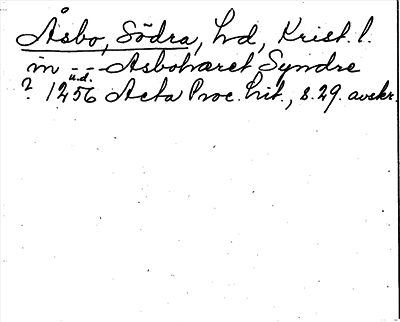 Åsbo, Södra, hd, Krist. l.
in --- Asbohæret Syndre
u.d.
? 1256 Acta Proc. Lit., s. 29. avskr.